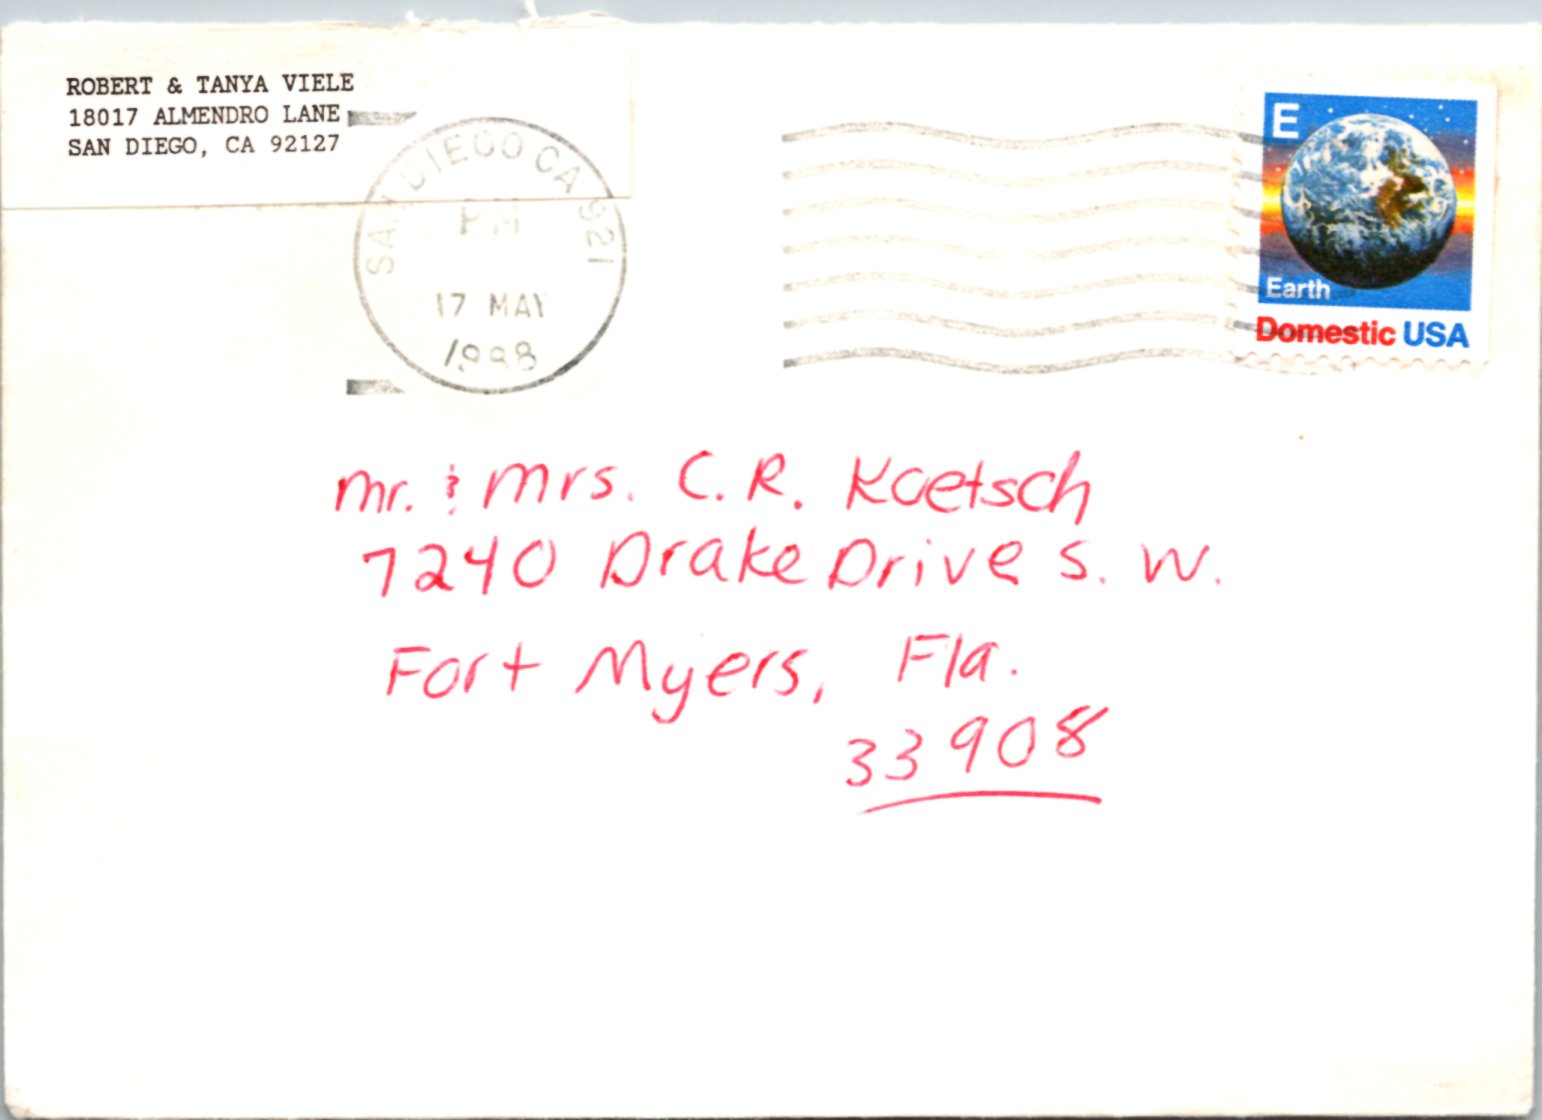 ROBERT & TANYA VIELE
18017 ALMENDRO LANE
SAN DIEGO, CA 92127
SAN DIEGO CA 921
PM
17 MAY
1988
E
Earth
Domestic USA
Mr. & Mrs. C. R. Koetsch
7240 Drake Drive S. W.
Fort Myers, Fla.
33908